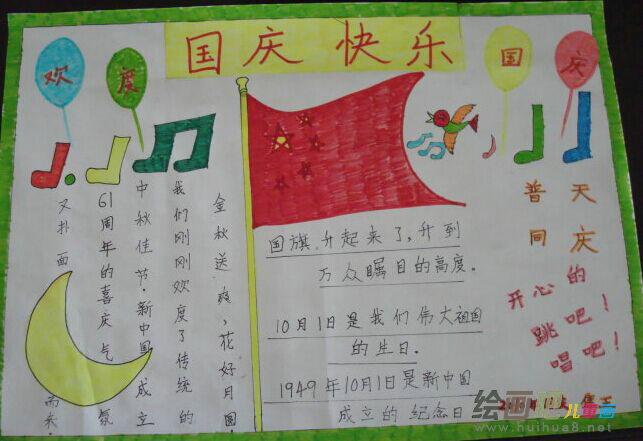 国庆快乐
欢度
国庆
金秋送爽，花好月圆，
我们刚刚欢度了传统的
中秋佳节·新中国成立
61周年的喜庆气氛
又扑面而来·
国旗升起来了，升到
万众瞩目的高度。
10月1日是我们伟大祖国
的生日.
1949年10月1日是新中国
成立的纪念日
普天
同庆
开心的
跳吧！
唱吧！
绘画吧
儿童画
www.huihua8.net